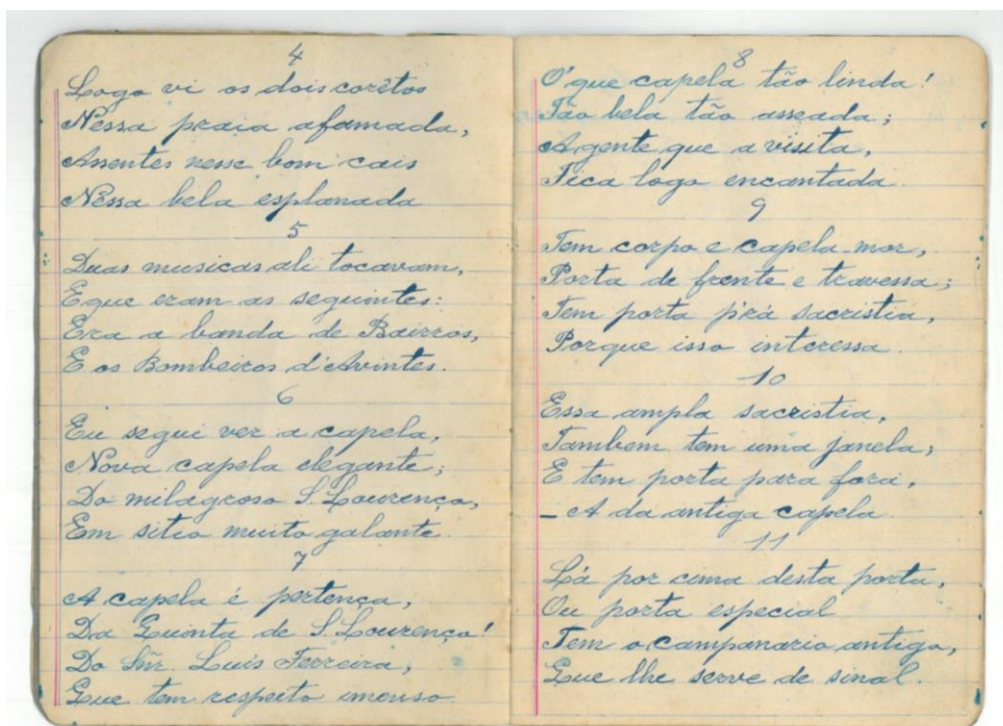 4
Logo vi os dois corêtos
Nessa praia afamada,
Assentes nesse bom cais
Nessa bela esplanada
5
Duas musicas ali tocavam,
E que eram as seguintes:
Era a banda de Bairros,
E os Bombeiros d'Avintes.
6
Eu segui ver a capela,
Nova capela elegante;
Do milagroso S. Lourenço,
Em sitio muito galante.
7
A capela é pertença,
Da Quinta de S. Lourenço!
Do Snr. Luis Ferreira,
Que tem respeito imenso
8
O' que capela tão linda!
Tão bela tão asseada;
A gente que a visita,
Fica logo encantada.
9
Tem corpo e capela-mor,
Porta de frente e travessa;
Tem porta p'rá sacristia,
Porque isso interessa.
10
Essa ampla sacristia,
Tambem tem uma janela;
E tem porta para fora,
_ A da antiga capela
11
Lá por cima desta porta,
Ou porta especial
Tem o campanario antigo,
Que lhe serve de sinal.